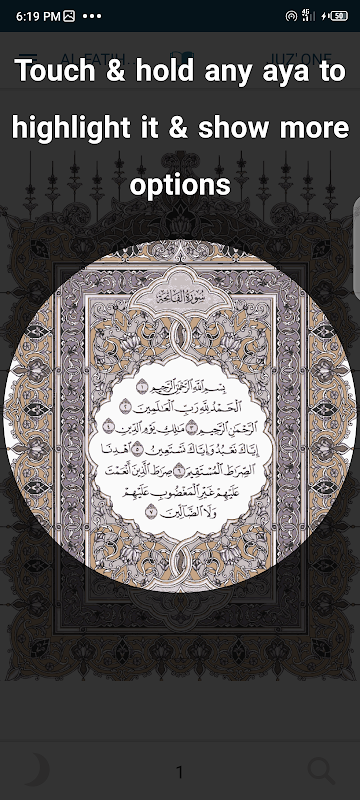 6:19 PM
4G
50
AL-FATIH...
JUZ' ONE
Touch & hold any aya to
highlight it & show more
options
سُورَةُ الفَاتِحَةِ
بِسْمِ ٱللَّهِ ٱلرَّحْمَٰنِ ٱلرَّحِيمِ ١
ٱلْحَمْدُ لِلَّهِ رَبِّ ٱلْعَٰلَمِينَ ٢
ٱلرَّحْمَٰنِ ٱلرَّحِيمِ ٣ مَٰلِكِ يَوْمِ ٱلدِّينِ ٤
إِيَّاكَ نَعْبُدُ وَإِيَّاكَ نَسْتَعِينُ ٥ ٱهْدِنَا
ٱلصِّرَٰطَ ٱلْمُسْتَقِيمَ ٦ صِرَٰطَ ٱلَّذِينَ أَنْعَمْتَ
عَلَيْهِمْ غَيْرِ ٱلْمَغْضُوبِ عَلَيْهِمْ
وَلَا ٱلضَّآلِّينَ ٧
1